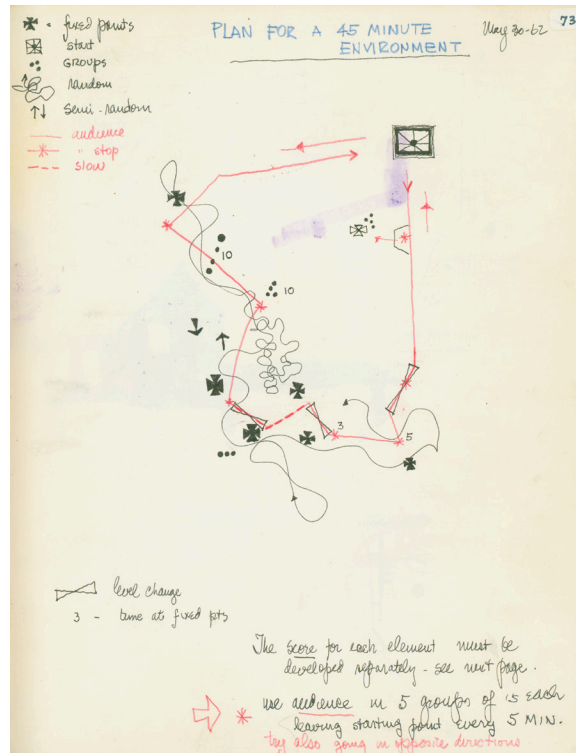 fixed points
start
GROUPS
random
semi-random
audience
" stop
slow
PLAN FOR A 45 MINUTE
ENVIRONMENT
May 30-62
73
10
10
3
5
level change
3 - time at fixed pts
The score for each element must be
developed separately - see next page.
use audience in 5 groups of 15 each
leaving starting point every 5 MIN.
try also going in opposite directions